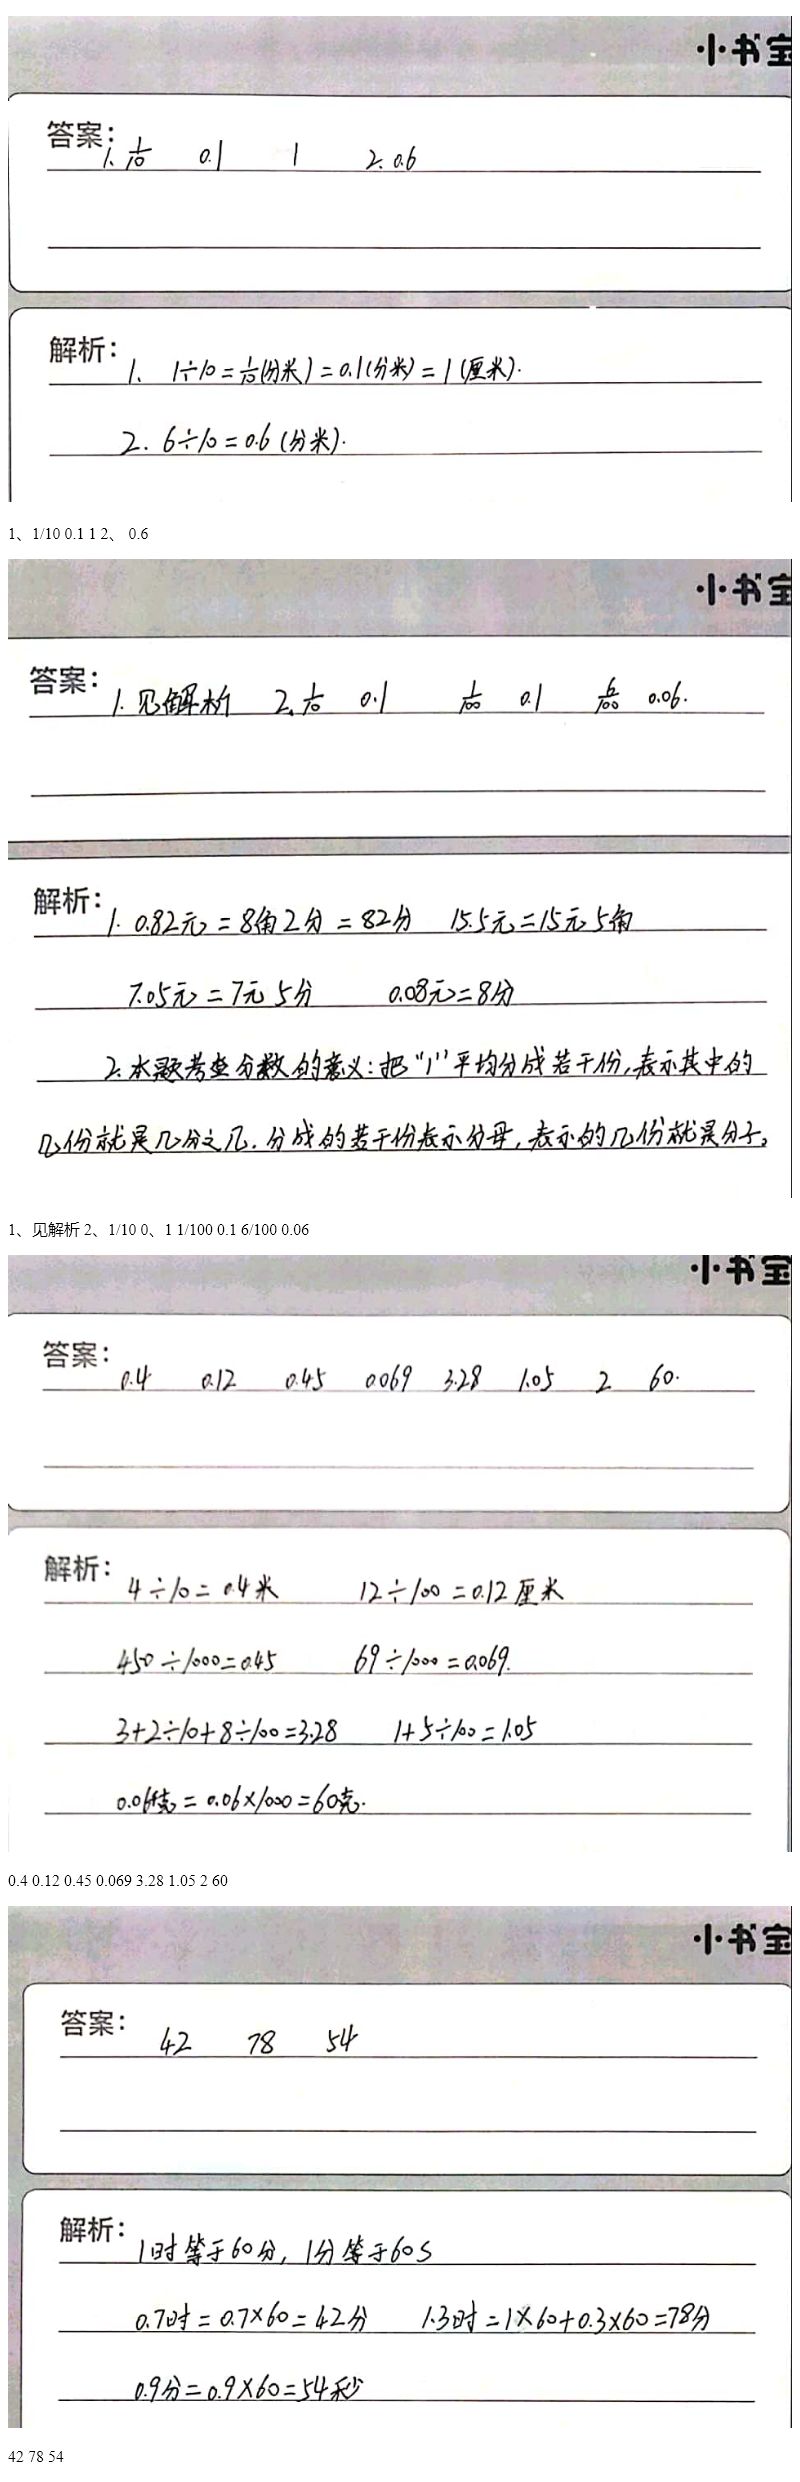 小书宝
答案：
1、1/10 0.1 1 2、0.6
解析：
1、 1÷10=1/10(分米)=0.1(分米)=1(厘米).
2. 6÷10=0.6(分米).
1、1/10 0.1 1 2、 0.6
小书宝
答案：
1. 见解析 2、1/10 0.1 1/100 0.1 6/100 0.06.
解析：
1. 0.82元=8角2分=82分 15.5元=15元5角
7.05元=7元5分 0.08元=8分
2.本题考查分数的意义:把“1”平均分成若干份,表示其中的
几份就是几分之几.分成的若干份表示分母,表示的几份就是分子。
1、见解析 2、1/10 0、1 1/100 0.1 6/100 0.06
小书宝
答案：
0.4 0.12 0.45 0.069 3.28 1.05 2 60.
解析：
4÷10=0.4米 12÷100=0.12厘米
450÷1000=0.45 69÷1000=0.069.
3+2÷10+8÷100=3.28 1+5÷100=1.05
0.06千克=0.06×1000=60克.
0.4 0.12 0.45 0.069 3.28 1.05 2 60
小书宝
答案：
42 78 54
解析：
1时等于60分，1分等于60S
0.7时=0.7×60=42分 1.3时=1×60+0.3×60=78分
0.9分=0.9×60=54秒
42 78 54